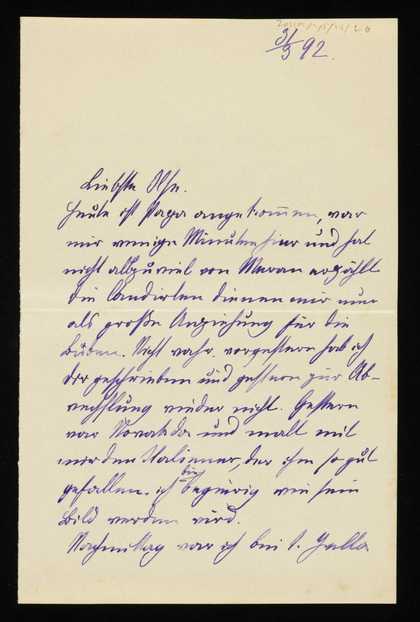 3/3 92.
Liebste Else.
Heute ist Papa angekommen, war
nur wenige Minuten hier und hat
nicht allzuviel von Meran erzählt
die Candirten dienen mir nun
als große Anziehung für die
Buben. Nicht wahr, vorgestern hab ich
dir geschrieben und gestern zur Ab-
wechslung wieder nicht. Gestern
war Novak da und malt mit
mir den Italiener, der ihm so gut
gefallen. ich bin begierig wie sein
Bild werden wird.
Nachmittag war ich bei